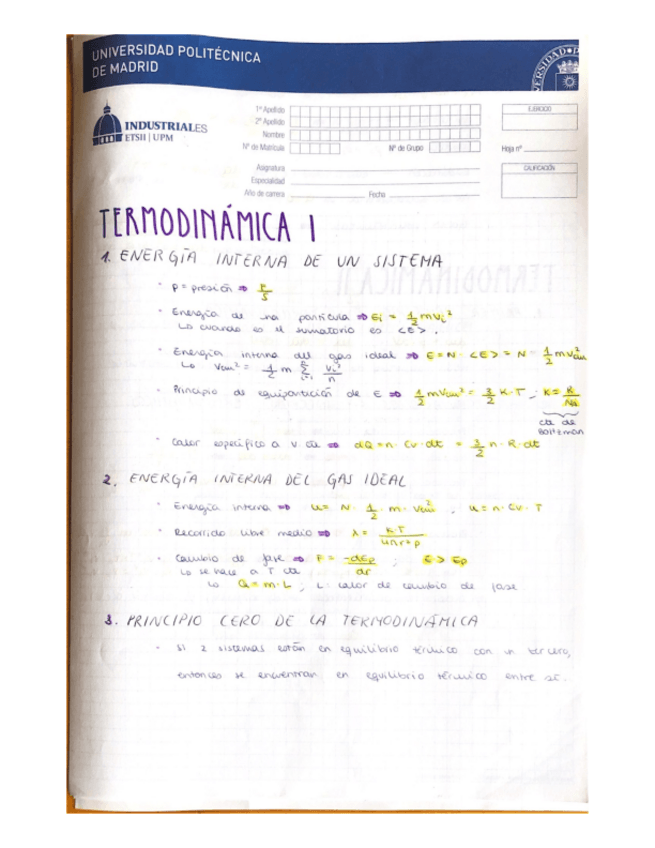 UNIVERSIDAD POLITÉCNICA
DE MADRID
INDUSTRIALES
ETSII | UPM
1º Apellido
2º Apellido
Nombre
Nº de Matrícula
Nº de Grupo
Asignatura
Especialidad
Año de carrera
Fecha
EJERCICIO
Hoja nº
CALIFICACIÓN
TERMODINÁMICA I
1. ENERGÍA INTERNA DE UN SISTEMA
· P = presión ⇒ F/S
· Energía de una partícula ⇒ Ei = 1/2 m vi²
↳ cuando es el sumatorio es <E>.
· Energía interna del gas ideal ⇒ E = N · <E> = N · 1/2 m v²cm
↳ vcm² = 1/2 m Σ vi²/n
· Principio de equipartición de E ⇒ 1/2 m vcm² = 3/2 K · T ; K = R/NA
cte de
Boltzman
· Calor específico a V cte ⇒ dQ = n · Cv · dt = 3/2 n · R · dt
2. ENERGÍA INTERNA DEL GAS IDEAL
· Energía interna ⇒ u = N · 1/2 · m · vcm² , u = n · Cv · T
· Recorrido libre medio ⇒ λ = K·T
· Cambio de fase ⇒ F = -dEp/dr ; E > Ep
↳ se hace a T cte
↳ Q = m · L ; L: calor de cambio de fase.
3. PRINCIPIO CERO DE LA TERMODINÁMICA
· Si 2 sistemas están en equilibrio térmico con un tercero,
entonces se encuentran en equilibrio térmico entre sí.